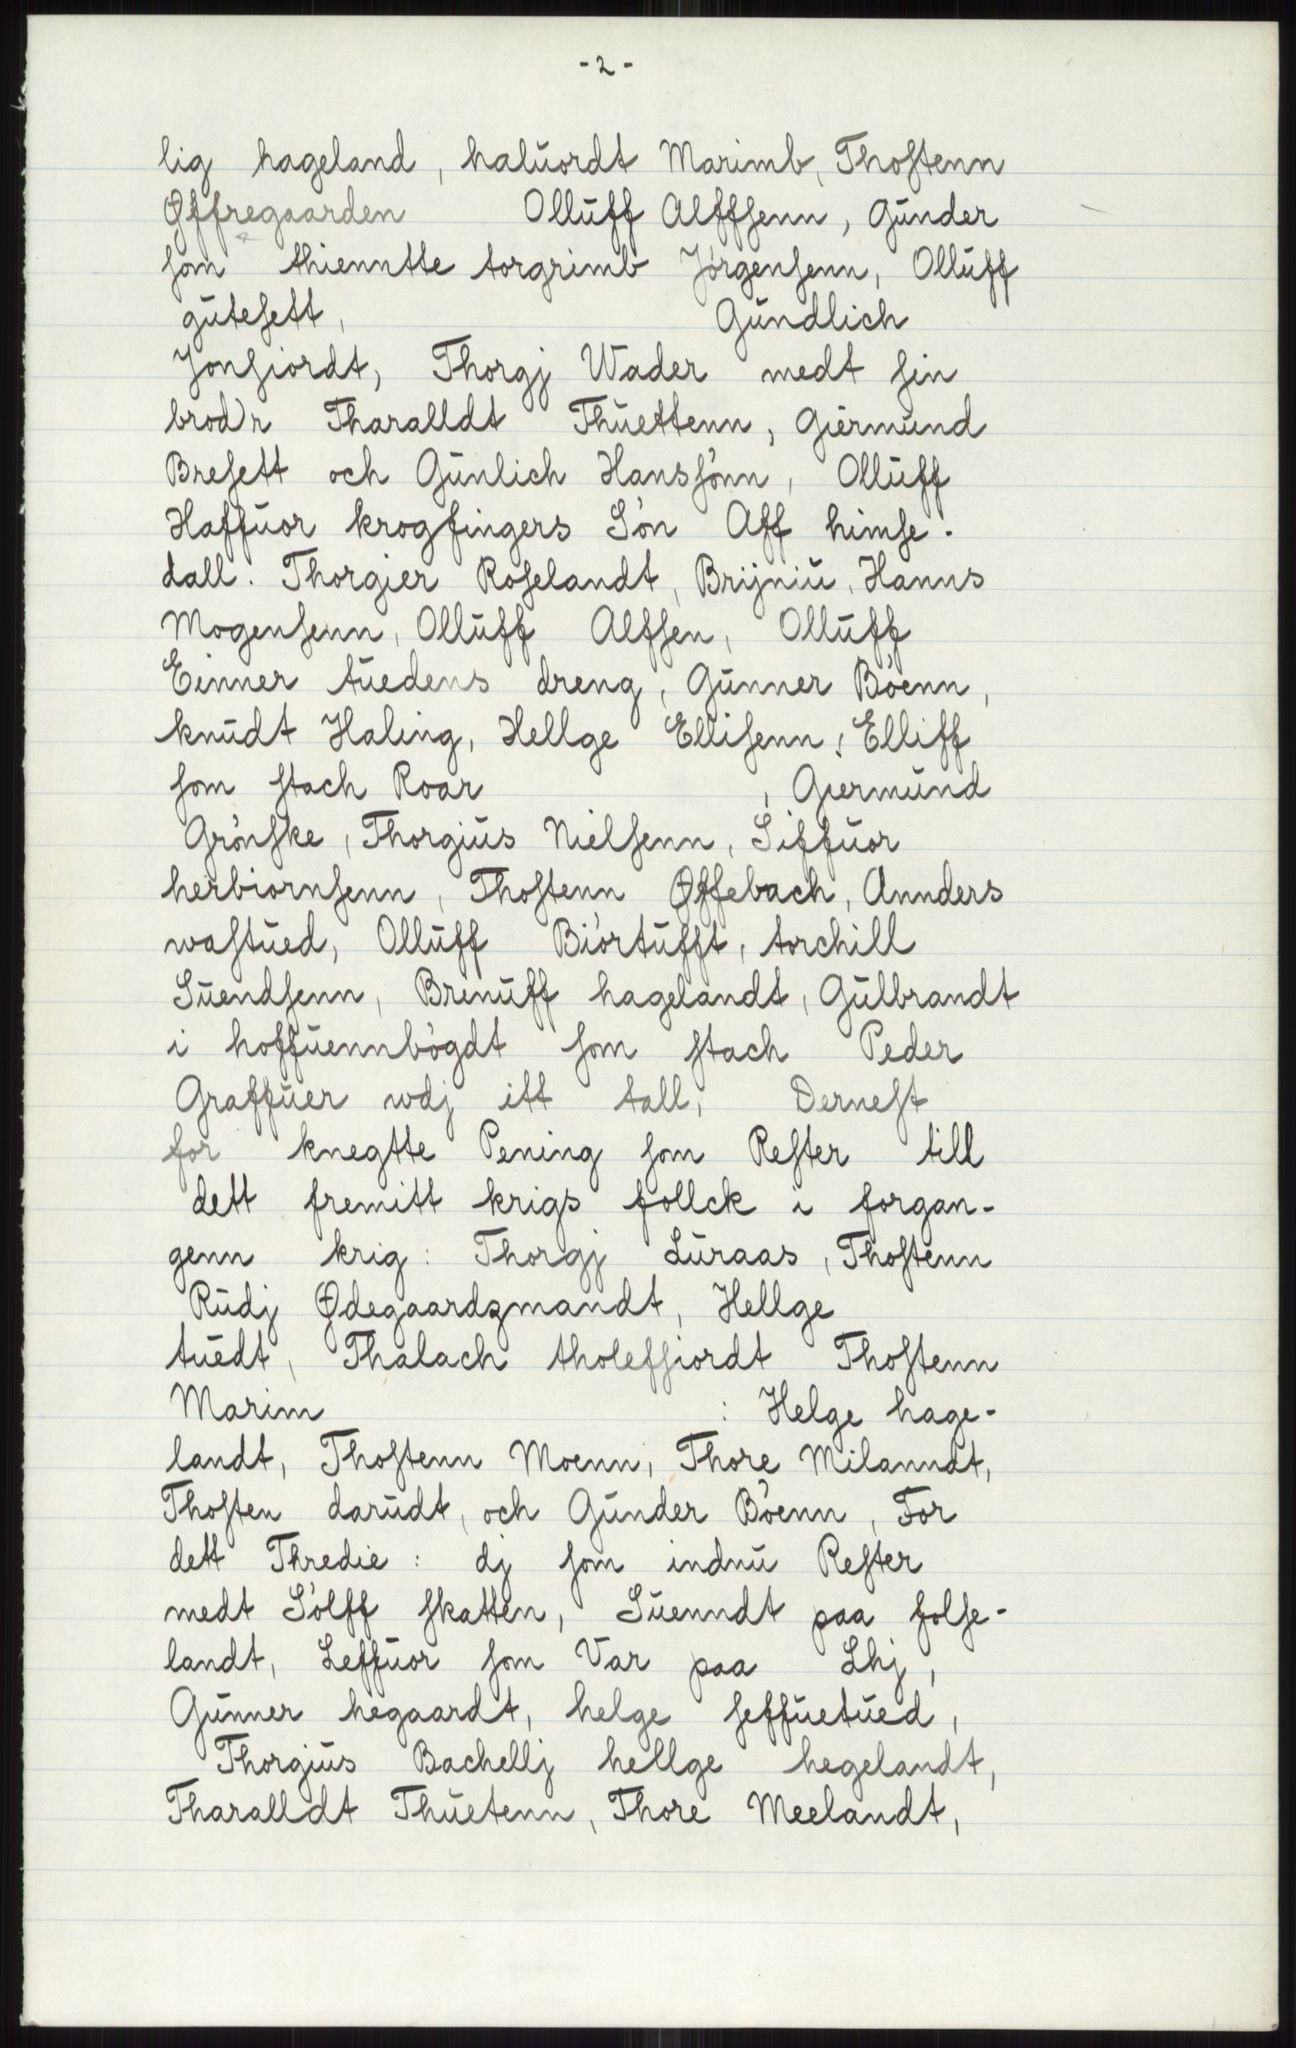 - 2 -
lig hageland, haluordt Marimb, Thostenn
Øffregaarden Olluff Alffsenn, Gunder
som thienntte torgrimb Jørgensenn, Olluff
gutesett, Gundlich
Jonsiordt, Thorgj Wader medt sin
brod)r Tharalldt Thuettenn, Giermund
Bresett och Gunlich Hanssønn, Olluff
Haffuor krogfingers Søn Aff himse-
dall. Thorgier Roselandt, Brijniu, Hanns
Mogensenn, Olluff Alfsen, Olluff
Einner tuedens dreng, Gunner Bøenn,
knudt Haling, Hellge Ellisenn, Elliff
som stach Roar , Giermund
Grønske, Thorgius Nielsenn, Siffuor
herbiornsenn, Thostenn Øffebach, Annders
wastued, Olluff Biørtufft, torchill
Suendsenn, Brenuff hagelandt, Gulbrandt
i hoffuennbøgdt som stach Peder
Graffuer wdj itt tall, Dernest
for knegtte Pening som Rester till
dett fremitt krigs follck i forgan-
genn krig: Thorgj Luraas, Thostenn
Rudj Ødegaardzmandt, Hellge
tuedt, Thalach tholeffiordt Thostenn
Marim : Helge hage-
landt, Thostenn Moenn, Thore Milanndt,
Thosten darudt, och Gunder Bøenn, For
dett Thredie: dj som indnu Rester
medt Sølff skatten, Suenndt paa folse-
landt, Leffuor som Var paa Lhj,
Gunner hegaardt, helge seffuetued,
Thorgius Bachellj hellge hegelandt,
Tharalldt Thuetenn, Thore Meelandt,